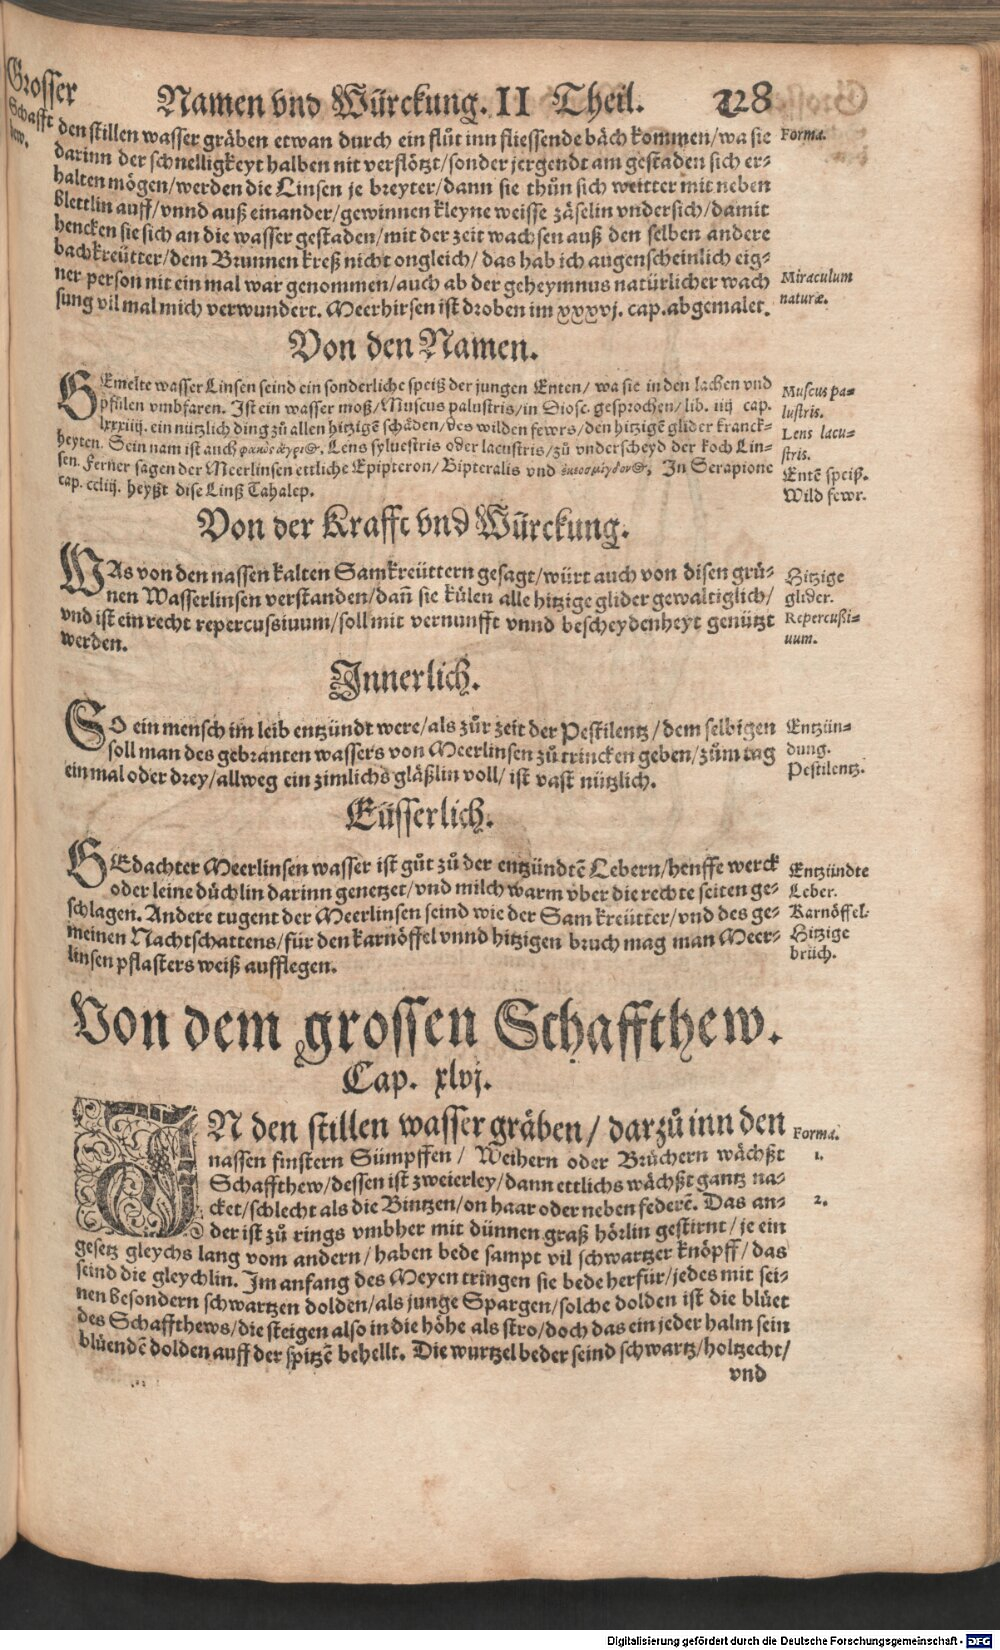 Grosser
Schafft
hew.
Namen vnd Würckung. II Theil. 228
den stillen wasser gräben etwan durch ein flůt inn fliessende bäch kommen/wa sie
darinn der schnelligkeyt halben nit verflötzt/sonder jergendt am gestaden sich er-
halten mögen/werden die Linsen je breyter/dann sie thůn sich weitter mit neben
blettlin auff/vnnd auß einander/gewinnen kleyne weisse zäselin vndersich/damit
hencken sie sich an die wasser gestaden/mit der zeit wachsen auß den selben andere
bachkreütter/dem Brunnen kreß nicht ongleich/das hab ich augenscheinlich eig-
ner person nit ein mal war genommen/auch ab der geheymnus natürlicher wach
sung vil mal mich verwundert. Meerhirsen ist droben im xxxvj. cap. abgemalet.
Forma.
Miraculum
naturæ.
Von den Namen.
GEmelte wasser Linsen seind ein sonderliche speiß der jungen Enten/ wa sie in den lachen vnd
pfülen vmbfaren. Ist ein wasser moß/Muscus palustris/in Diosc. gesprochen/lib. iiij cap.
lxxxiiij. ein nützlich ding zů allen hitzigē schäden/des wilden fewrs/den hitzigē glider kranck-
heyten. Sein nam ist auch φακὸς ἄγριος, Lens syluestris oder lacustris/zů vnderscheyd der koch Lin-
sen. Ferner sagen der Meerlinsen ettliche Epipteron/Bipteralis vnd In Serapione
cap. ccliij. heyßt dise Linß Tahalep.
Muscus pa-
lustris.
Lens lacu-
stris.
Entē speiß.
Wild fewr.
Von der Krafft vnd Würckung.
WAs von den nassen kalten Samkreüttern gesagt/würt auch von disen grü-
nen Wasserlinsen verstanden/dañ sie külen alle hitzige glider gewaltiglich/
vnd ist ein recht repercussiuum/soll mit vernunfft vnnd bescheydenheyt genützt
werden.
Hitzige
glider.
Repercußi-
uum.
Innerlich.
SO ein mensch im leib entzündt were/als zůr zeit der Pestilentz/dem selbigen
soll man des gebranten wassers von Meerlinsen zů trincken geben/zům tag
ein mal oder drey/allweg ein zimlichs gläßlin voll/ist vast nützlich.
Entzün-
dung.
Pestilentz.
Eüsserlich.
GEdachter Meerlinsen wasser ist gůt zů der entzündtē Lebern/henffe werck
oder leine düchlin darinn genetzet/vnd milchwarm vber die rechte seiten ge-
schlagen. Andere tugent der Meerlinsen seind wie der Samkreütter/vnd des ge-
meinen Nachtschattens/für den karnöffel vnnd hitzigen bruch mag man Meer-
linsen pflasters weiß aufflegen.
Entzündte
Leber.
Karnöffel.
Hitzige
brüch.
Von dem grossen Schaffthew.
Cap. xlvj.
IN den stillen wasser gräben/ darzů inn den
nassen finstern Sümpffen/ Weihern oder Brüchern wächßt
Schaffthew/dessen ist zweierley/dann ettlichs wächßt gantz na-
cket/schlecht als die Bintzen/on haar oder neben federē. Das an-
der ist zů rings vmbher mit dünnen graß hörlin gestirnt/je ein
gesetz gleychs lang vom andern/haben bede sampt vil schwartzer knöpff/das
seind die gleychlin. Im anfang des Meyen tringen sie bede herfür/jedes mit sei-
nen besondern schwartzen dolden/als junge Spargen/solche dolden ist die blüet
des Schaffthews/die steigen also in die höhe als stro/doch das ein jeder halm sein
blüendē dolden auff der spitzē behellt. Die wurtzel beder seind schwartz/holtzecht/
vnd
Forma.
1.
2.
Digitalisierung gefördert durch die Deutsche Forschungsgemeinschaft - DFG